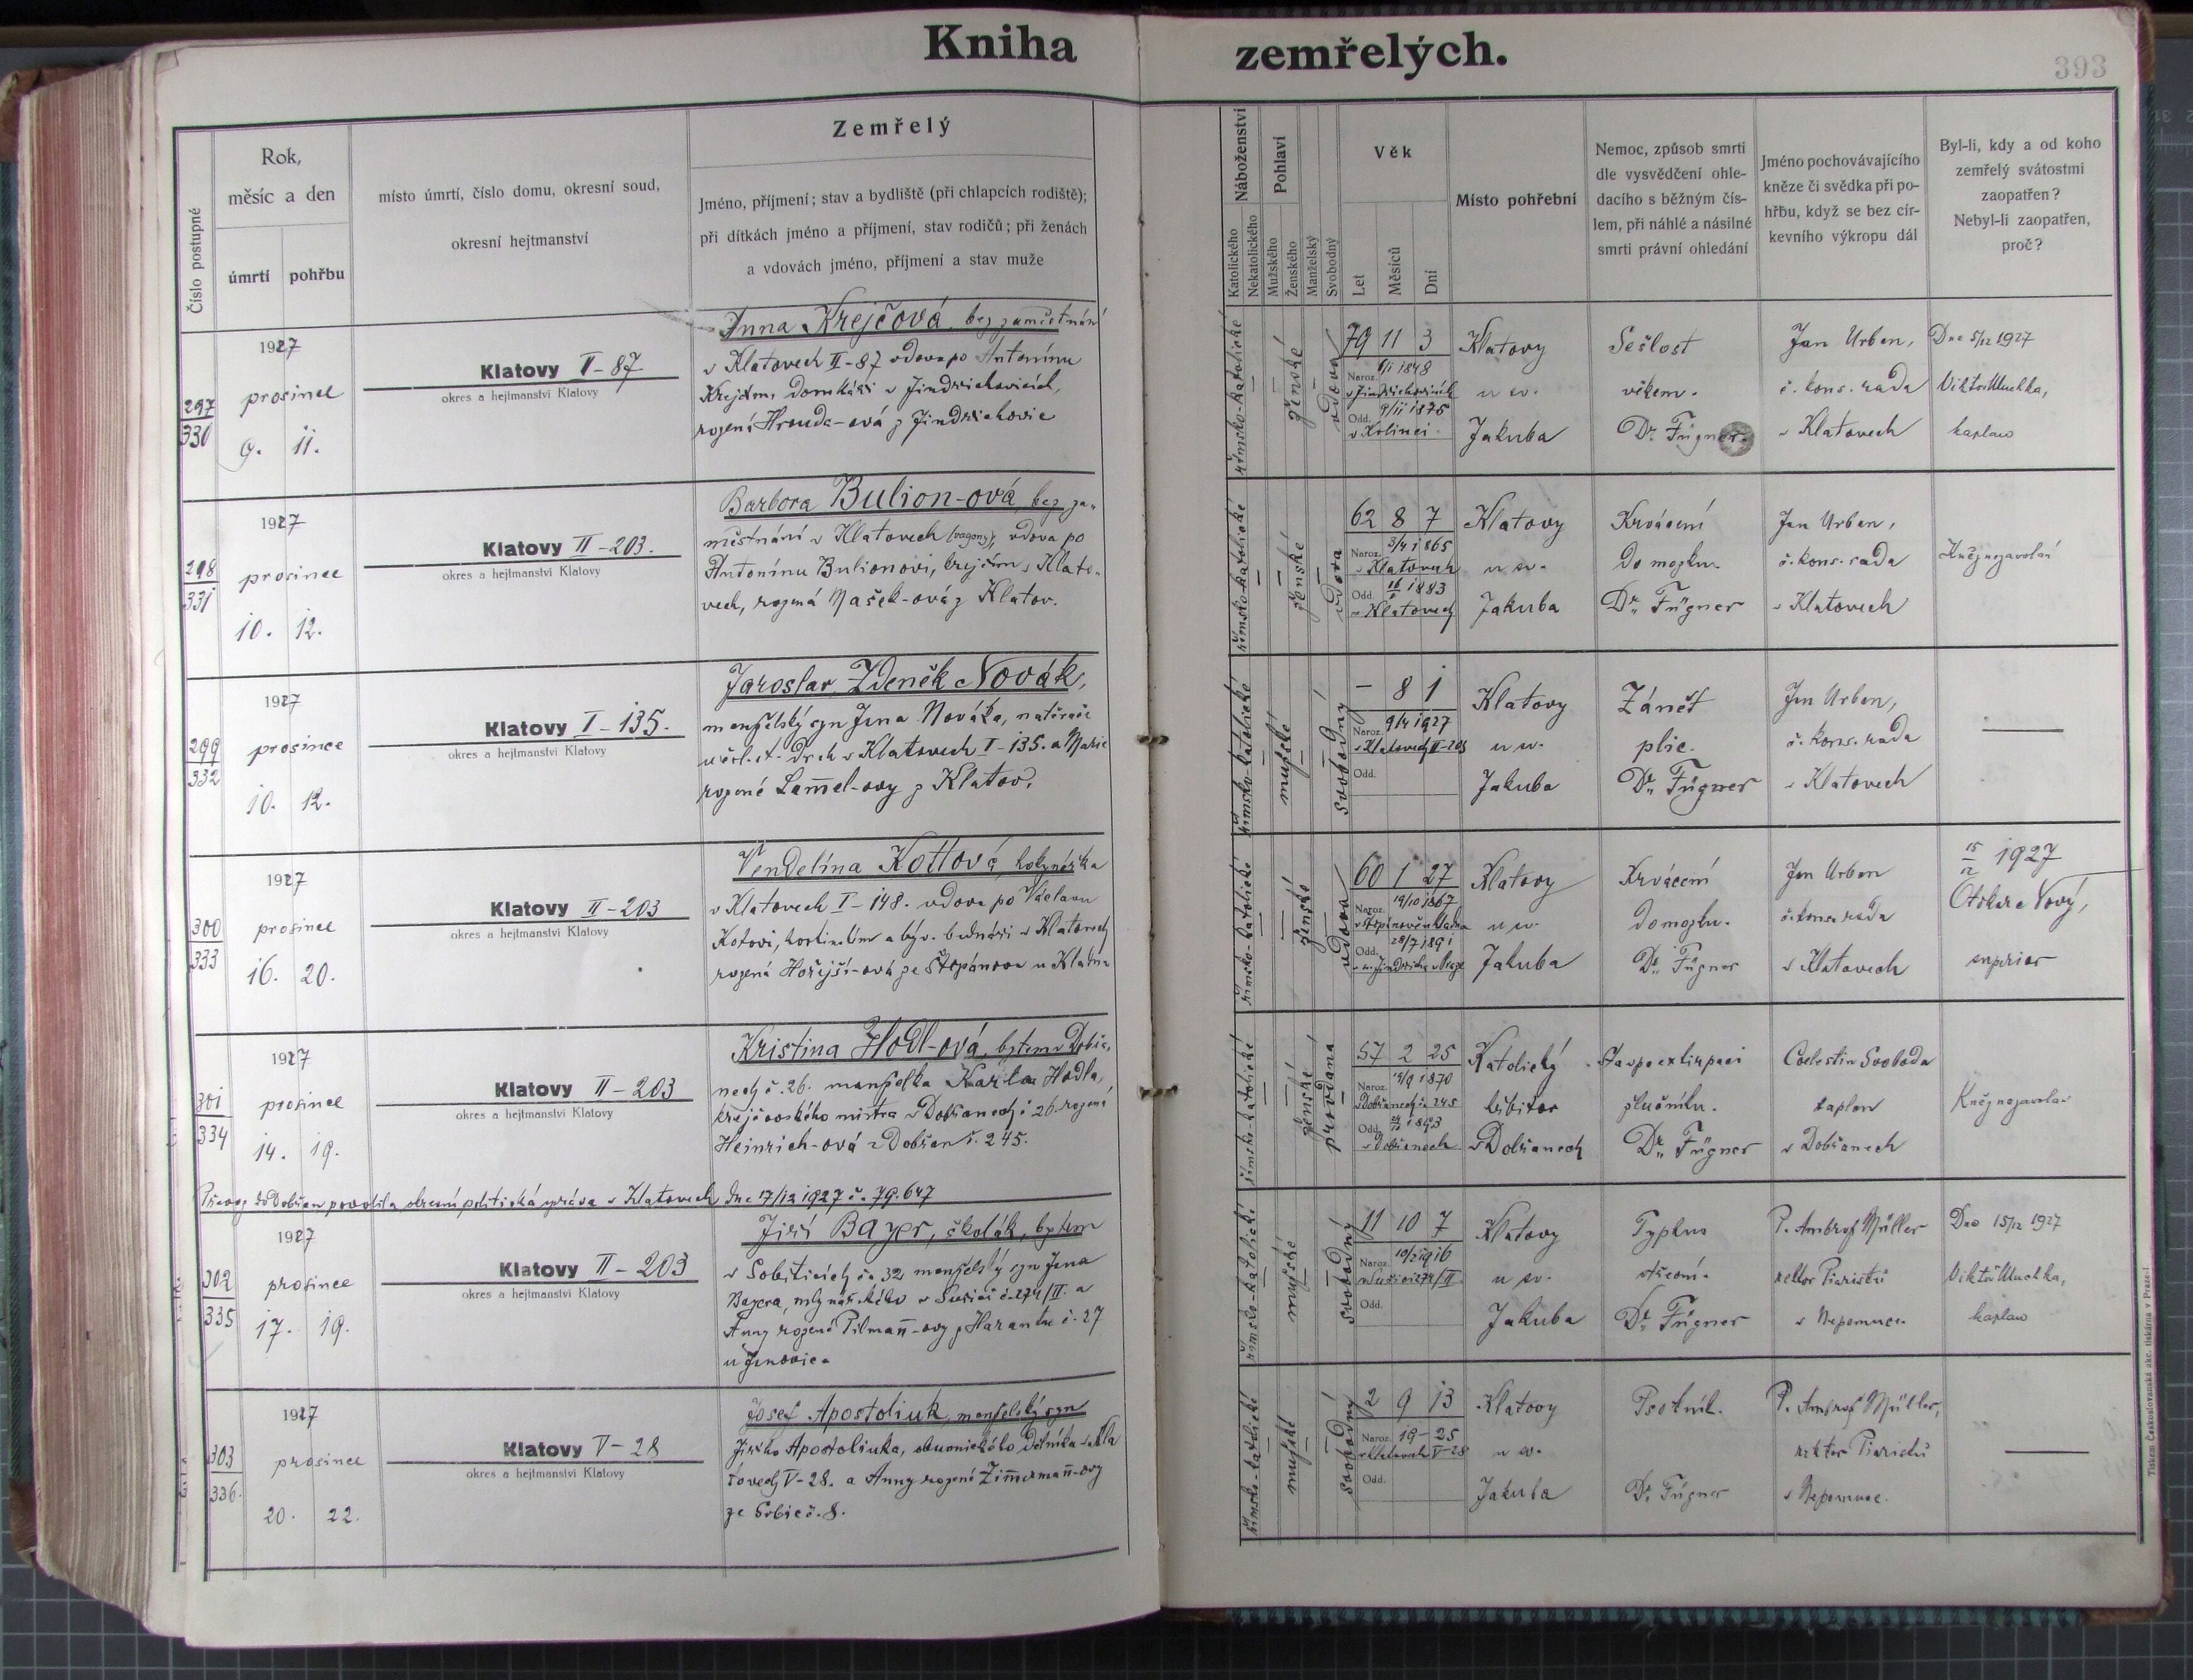 Kniha zemřelých.
393
Číslo postupné
Rok,
měsíc a den
úmrtí pohřbu
místo úmrtí, číslo domu, okresní soud,
okresní hejtmanství
Zemřelý
Jméno, příjmení; stav a bydliště (při chlapcích rodiště);
při dítkách jméno a příjmení, stav rodičů; při ženách
a vdovách jméno, příjmení a stav muže
Náboženství
Katolického
Nekatolického
Pohlaví
Mužského
Ženského
Manželský
Svobodný
Věk
Let
Měsíců
Dní
Místo pohřební
Nemoc, způsob smrti
dle vysvědčení ohle-
dacího s běžným čís-
lem, při náhlé a násilné
smrti právní ohledání
Jméno pochovávajícího
kněze či svědka při po-
hřbu, když se bez cír-
kevního výkropu dál
Byl-li, kdy a od koho
zemřelý svátostmi
zaopatřen?
Nebyl-li zaopatřen,
proč?
297
330
1927
prosinec
9. 11.
Klatovy II-87
okres a hejtmanství Klatovy
Anna Krejčová, bez zaměstnání
v Klatovech II-87 vdova po Antonínu
Krejčím, domkáři v Jindřichovicích,
rozená Hrouda-ová z Jindřichovic
římsko-katolické
ženské
vdova
79 11 3
Naroz. 6/1 1848
v Jindřichovicích
Odd. 9/11 1875
v Kolinci
Klatovy
u sv.
Jakuba
Sešlost
věkem.
Dr. Fügner
Jan Urban,
č. kons. rada
v Klatovech
Dne 5/12 1927
Viktor Muchka,
kaplan
298
331
1927
prosinec
10. 12.
Klatovy II-203.
okres a hejtmanství Klatovy
Barbora Bulion-ová, bez za-
městnání v Klatovech (vagony), vdova po
Antonínu Bulionovi, krejčím v Klato-
vech, rozená Mašek-ová z Klatov.
římsko-katolické
ženské
vdova
62 8 7
Naroz. 3/4 1865
v Klatovech
Odd. 1883
v Klatovech
Klatovy
u sv.
Jakuba
Krvácení
do mozku.
Dr. Fügner
Jan Urban,
č. kons. rada
v Klatovech
Kněz nezavolán
299
332
1927
prosince
10. 12.
Klatovy I-135.
okres a hejtmanství Klatovy
Jaroslav Zdeněk Novák,
manželský syn Jana Nováka, natěrače
u čsl. st. drah v Klatovech I-135. a Marie
rozené Lam̄el-ovy z Klatov.
římsko-katolické
mužské
svobodný
- 8 1
Naroz. 9/4 1927
v Klatovech II-203
Odd.
Klatovy
u sv.
Jakuba
Zánět
plic.
Dr. Fügner
Jan Urban,
č. kons. rada
v Klatovech
300
333
1927
prosinec
16. 20.
Klatovy II-203
okres a hejtmanství Klatovy
Vendelína Kottová, hokynářka
v Klatovech I-148. vdova po Václavu
Kotovi, hostinském a býv. bednáři v Klatovech
rozená Hořejší-ová ze Štěpánova u Kladna
římsko-katolické
ženské
vdova
60 1 27
Naroz. 19/10 1867
Odd. 28/7 1891
Klatovy
u sv.
Jakuba
Krvácení
do mozku.
Dr. Fügner
Jan Urban
č. kons. rada
v Klatovech
15/12 1927
Otokar Nový,
superior
301
334
1927
prosinec
14. 19.
Klatovy II-203
okres a hejtmanství Klatovy
Kristina Hodl-ová, bytem v Dobřa-
nech č. 26. manželka Karla Hodla,
krejčovského mistra v Dobřanech č 26. rozená
Heinrich-ová z Dobřan č. 245.
římsko-katolické
ženské
provdaná
57 2 25
Naroz. 19/9 1870
v Dobřanech č. 245
Odd. 1893
v Dobřanech
Katolický
hřbitov
v Dobřanech
Stav po extirpaci
žlučníku.
Dr. Fügner
Coelestin Svoboda
kaplan
v Dobřanech
Kněz nezavolán
Převoz do Dobřan povolila okresní politická správa v Klatovech dne 17/12 1927 č. 79.647
302
335
1927
prosince
17. 19.
Klatovy II-203
okres a hejtmanství Klatovy
Jiří Bayer, školák, bytem
v Soběticích č. 32 manželský syn Jana
Bayera, mlynářského v Sušici č. 274/II. a
Anny rozené Pilman̄-ovy z Harantu č. 27
u Janovic.
římsko-katolické
mužské
svobodný
11 10 7
Naroz. 10/2 1916
v Sušici 274/II
Odd.
Klatovy
u sv.
Jakuba
Typhus
střevní.
Dr. Fügner
P. Ambrož Müller
rektor Piaristů
v Nepomuce.
Dne 15/12 1927
Viktor Muchka,
kaplan
303
336.
1927
prosince
20. 22.
Klatovy V-28
okres a hejtmanství Klatovy
Josef Apostoliuk, manželský syn
Jiřího Apostoliuka, dělníka v Kla-
tovech V-28. a Anny rozené Zim̄erman̄-ovy
ze Srbic č. 8.
římsko-katolické
mužské
svobodný
2 9 13
Naroz. 19-25
v Klatovech V-28
Odd.
Klatovy
u sv.
Jakuba
Psotník.
Dr. Fügner
P. Ambrož Müller,
rektor Piaristů
v Nepomuce.
Tiskem Československá akc. tiskárna v Praze-I